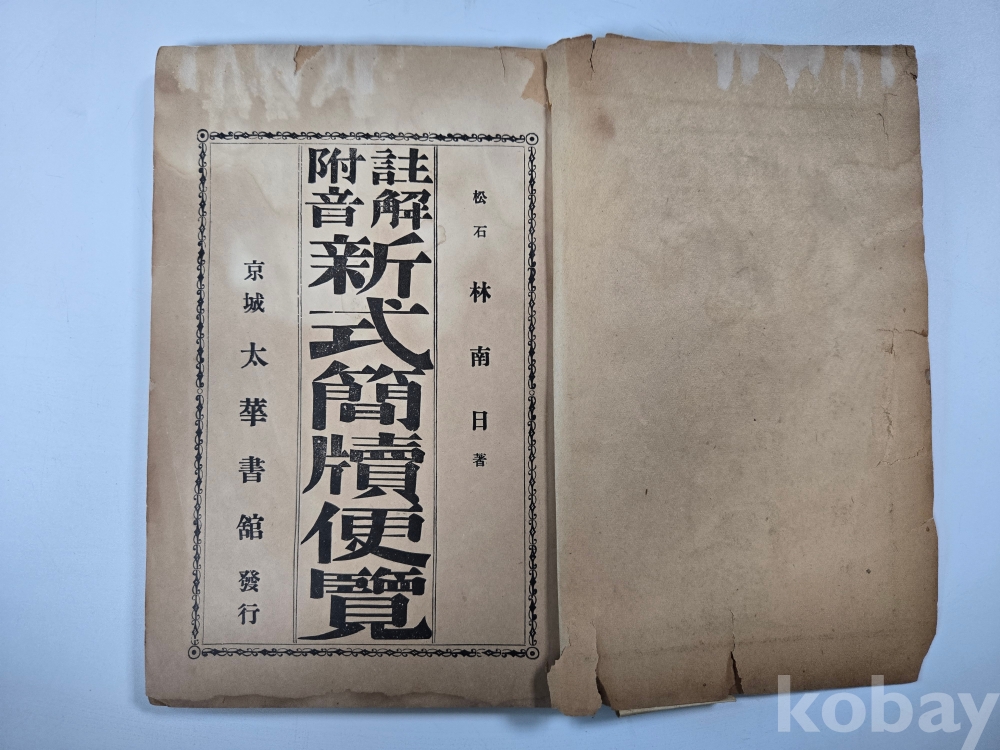 松石 林南日 著
註解
附音
新式簡牘便覽
京城 太華書舘 發行
kobay